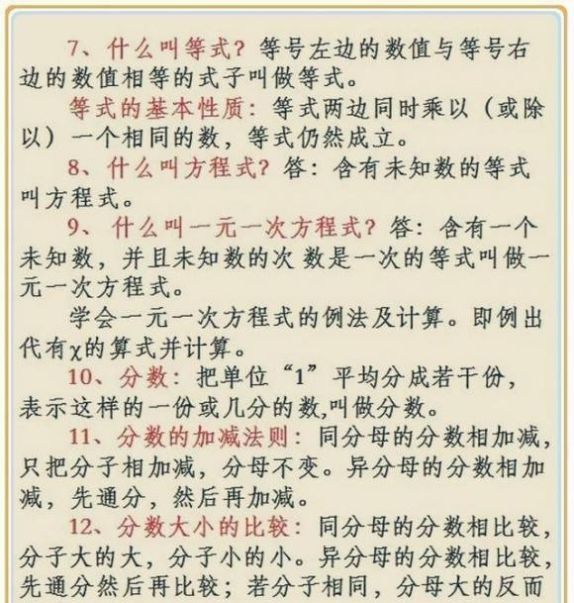 7、什么叫等式？等号左边的数值与等号右
边的数值相等的式子叫做等式。
等式的基本性质：等式两边同时乘以（或除
以）一个相同的数，等式仍然成立。
8、什么叫方程式？答：含有未知数的等式
叫方程式。
9、什么叫一元一次方程式？答：含有一个
未知数，并且未知数的次 数是一次的等式叫做一
元一次方程式。
学会一元一次方程式的例法及计算。即例出
代有χ的算式并计算。
10、分数：把单位“1”平均分成若干份，
表示这样的一份或几分的数,叫做分数。
11、分数的加减法则：同分母的分数相加减，
只把分子相加减，分母不变。异分母的分数相加
减，先通分，然后再加减。
12、分数大小的比较：同分母的分数相比较，
分子大的大，分子小的小。异分母的分数相比较，
先通分然后再比较；若分子相同，分母大的反而